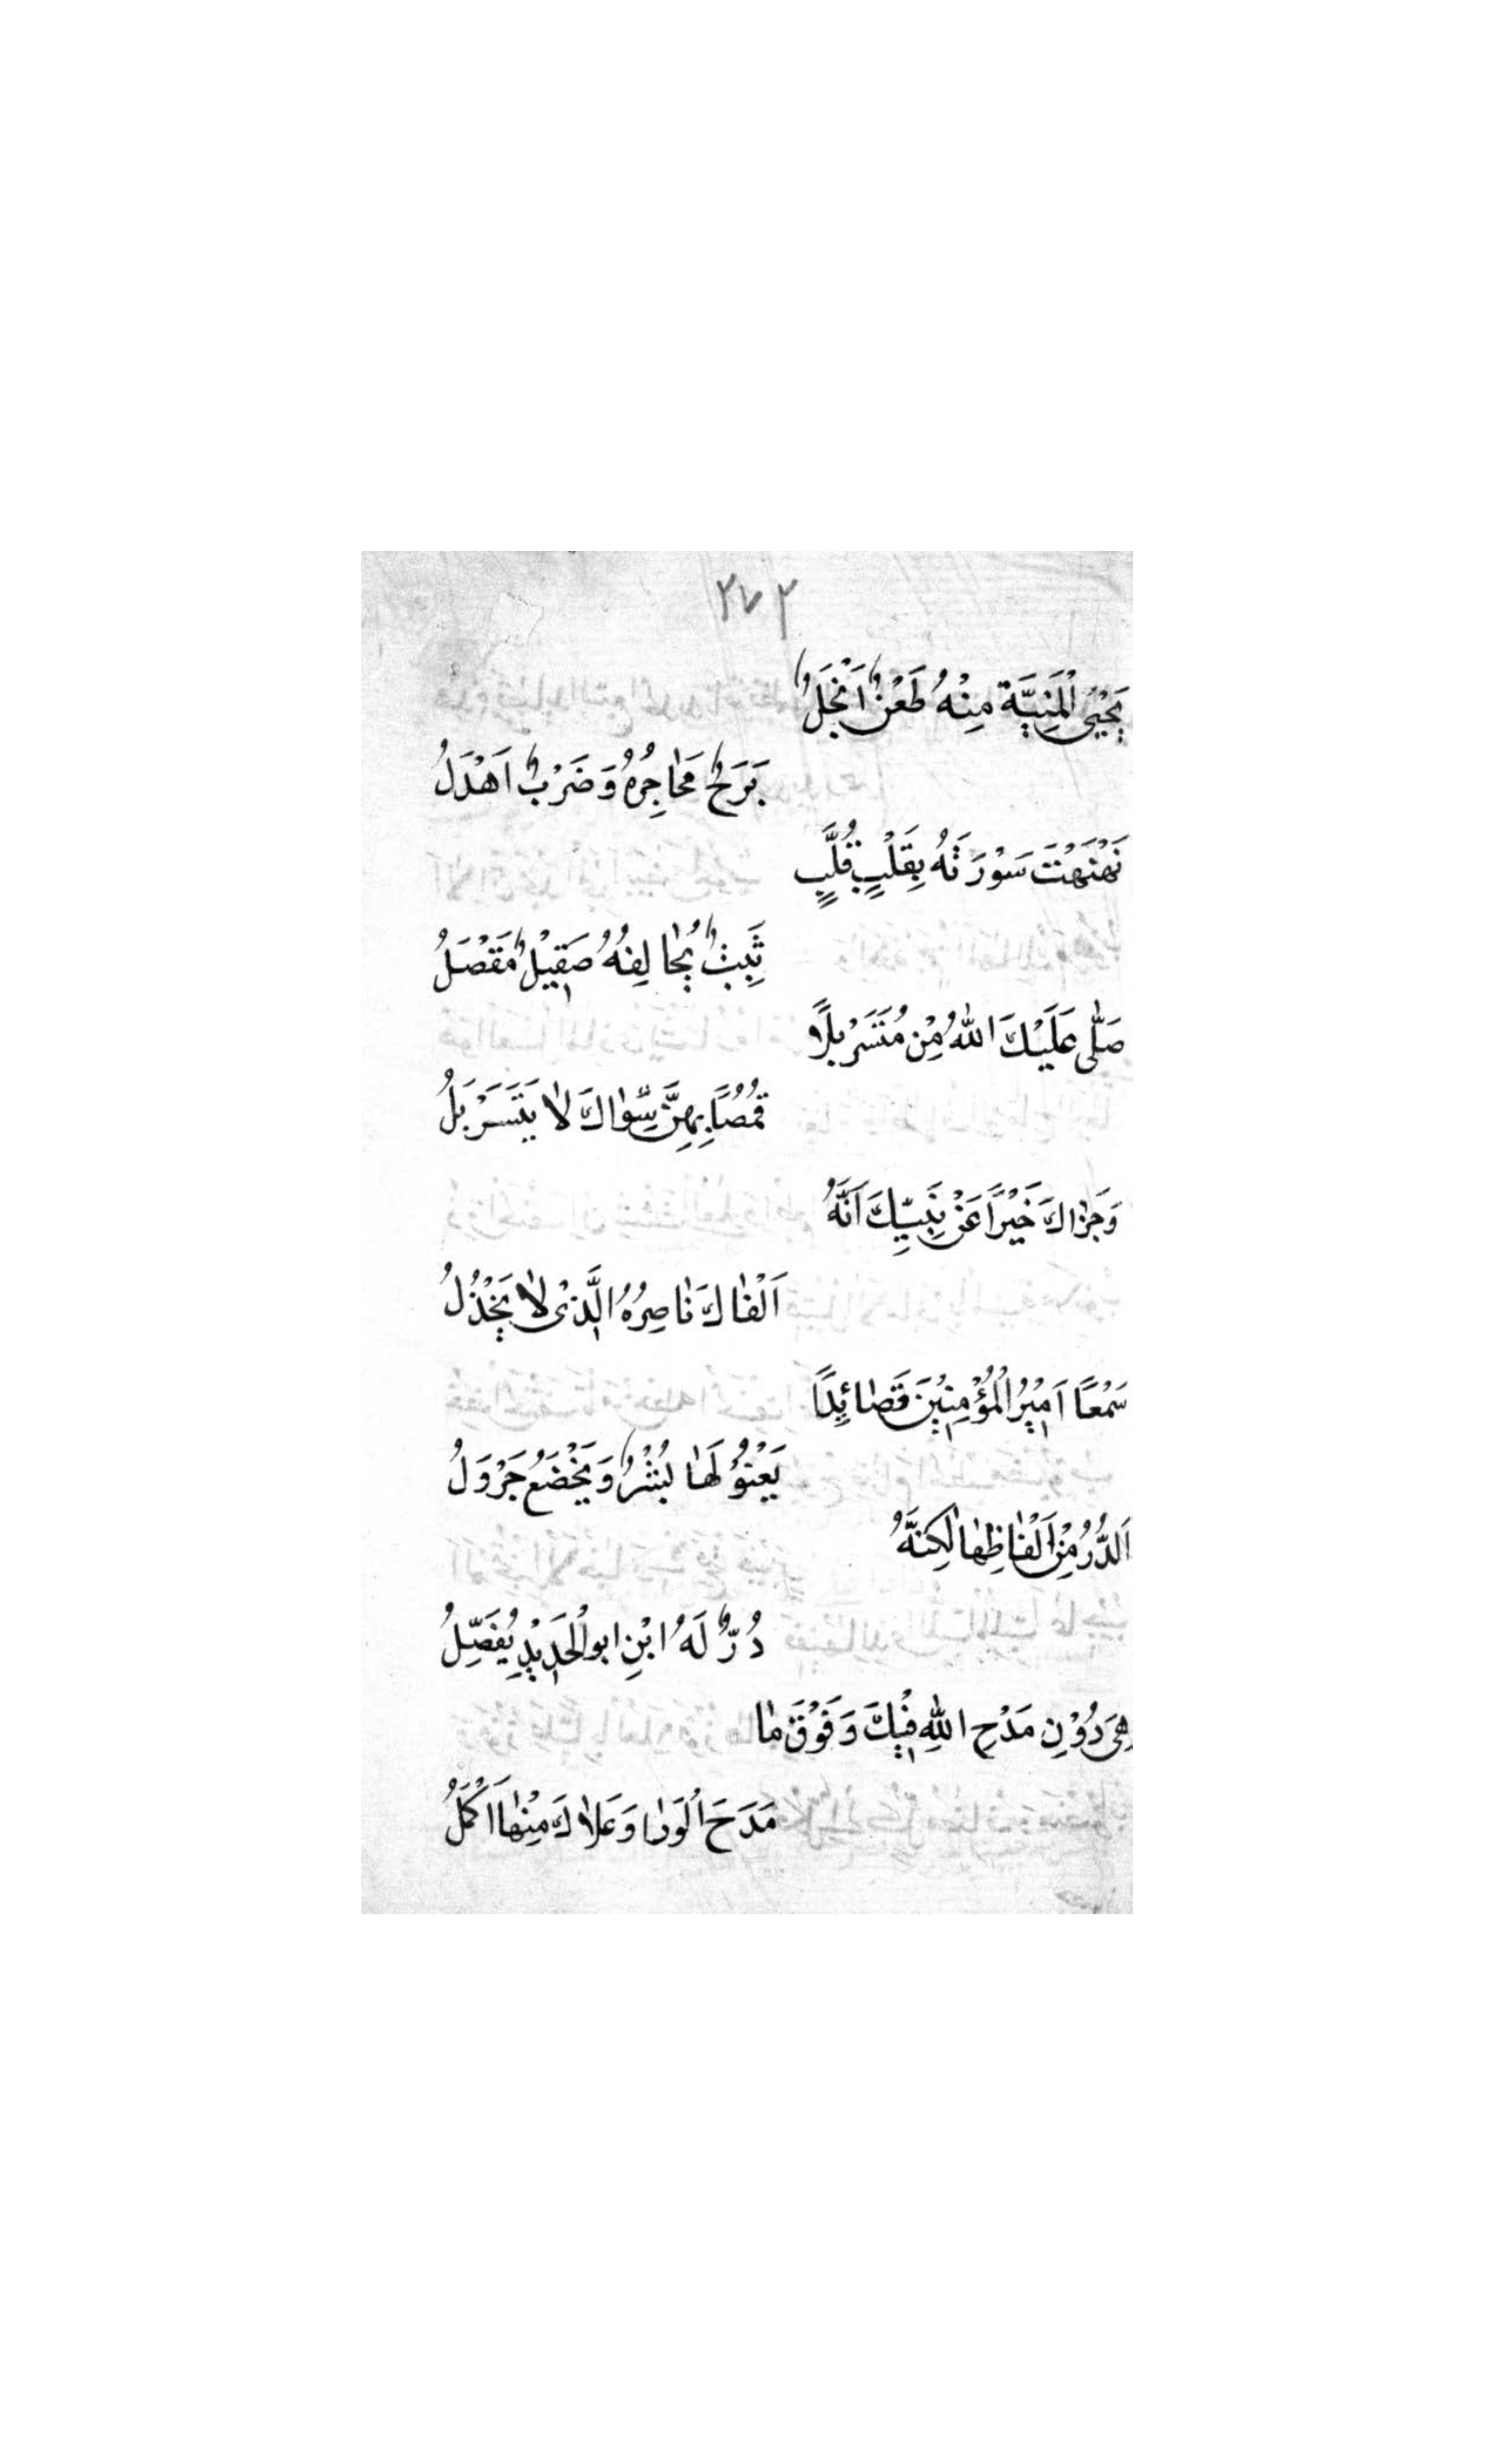 ٢٧٣
يَحْيَى الْمَنِيَّة مِنْهُ طَعْنٌ اَنْجَلُ
بَرَحٌ مَحاجِرُهُ وَضَرْبٌ اَهْدَلُ
نَهْنَهْتَ سَوْرَتَهُ بِقَلْبٍ قُلَّبٍ
ثَبِتٌ يُحالِفُهُ صَقِيْلٌ مَقْصَلُ
صَلّٰى عَلَيْكَ اللّٰهُ مِنْ مُتَسَرْبِلًا
قُمُصًا بِهِنَّ سِّوٰاكَ لاٰ يَتَسَرْبَلُ
وَجَزٰاكَ خَيْرًا عَنْ نَبِيِّكَ اَنَّهُ
اَلْفٰاكَ نٰاصِرُهُ الَّذىْ لاٰ يَخْذُلُ
سَمْعًا اَمِيْرُ الْمُؤْمِنِيْنَ قَصٰائِدًا
يَعْنُوْ لَهٰا بُشْرٌ وَيَخْضَعُ جَرْوَلُ
اَلدُّرُ مِنْ اَلْفٰاظِهٰا لٰكِنَّهُ
دُرٌّ لَهُ ابْنِ ابو الْحَدِيْدِ يُفَصِّلُ
هِىَ دُوْنِ مَدْحِ اللّٰهِ فِيْكَ وَفَوْقَ مٰا
مَدَحَ اْلوَرٰا وَعَلاٰكَ مِنْهٰا اَكْمَلُ